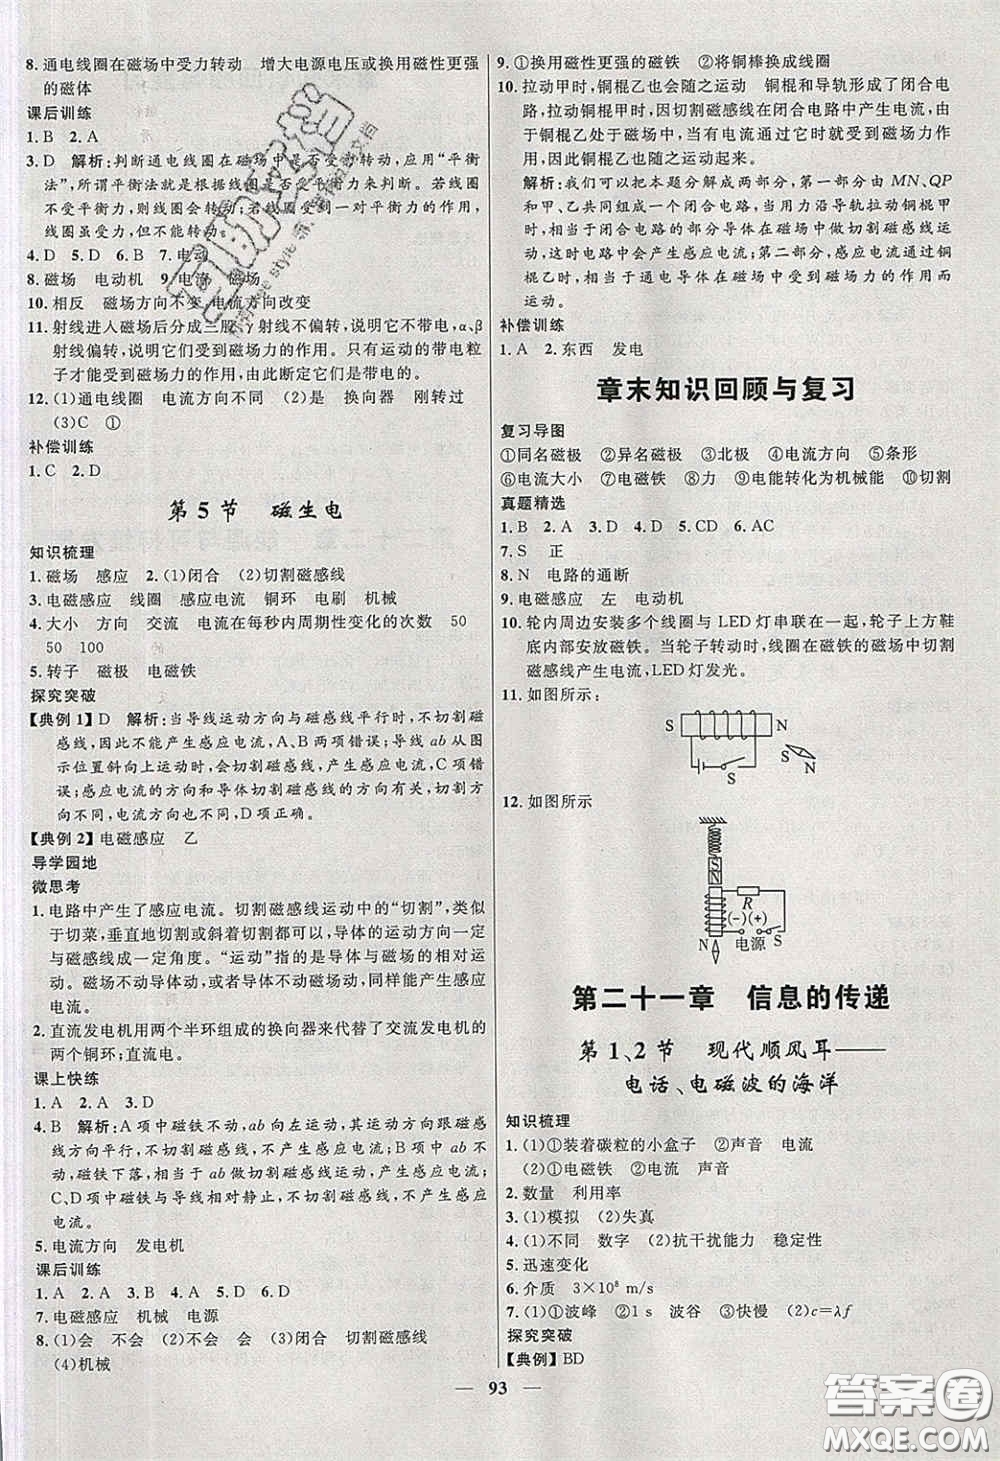 8. 通电线圈在磁场中受力转动　增大电源电压或换用磁性更强
的磁体
课后训练
1. B　2. A
3. D　解析:判断通电线圈在磁场中是否受力转动,应用“平衡
法”,所谓平衡法就是根据线圈是否受平衡力来判断。若线圈
不受平衡力,则线圈会转动;若线圈受平衡力的作用,
线圈虽受力,但不能转动。
4. D　5. D　6. B　7. 电动
8. 磁场　电动机　9. 电流　磁场
10. 相反　磁场方向不变　电流方向改变
11. 射线进入磁场后分成三股,γ射线不偏转,说明它不带电,α、β
射线偏转,说明它们受到磁场力的作用。只有运动的带电粒
子才能受到磁场力的作用,由此断定它们是带电的。
12. (1)通电线圈　电流方向不同　(2)是　换向器　刚转过
(3)C　①
补偿训练
1. C　2. D
第5节　磁生电
知识梳理
1. 磁场　感应　2. (1)闭合　(2)切割磁感线
3. 电磁感应　线圈　感应电流　铜环　电刷　机械
4. 大小　方向　交流　电流在每秒内周期性变化的次数　50
50　100
5. 转子　磁极　电磁铁
探究突破
【典例1】D　解析:当导线运动方向与磁感线平行时,不切割磁
感线,因此不能产生感应电流,A、B两项错误;导线ab从图
示位置斜向上运动时,会切割磁感线,产生感应电流,C项错
误;感应电流的方向和导体切割磁感线的方向有关,切割方
向不同,电流方向也不同,D项正确。
【典例2】电磁感应　乙
导学园地
微思考
1. 电路中产生了感应电流。切割磁感线运动中的“切割”,类似
于切菜,垂直地切割或斜着切割都可以,导体的运动方向一定
与磁感线成一定角度。“运动”指的是导体与磁场的相对运
动。磁场不动导体动,或者导体不动磁场动,同样能产生感应
电流。
2. 直流发电机用两个半环组成的换向器来代替了交流发电机的
两个铜环;直流电。
课上快练
1. A　2. A　3. D
4. B　解析:A项中磁铁不动,ab向左运动,其运动方向跟磁感
线方向平行,不切割磁感线,不产生感应电流;B项中ab不
动,磁铁下落,相当于ab做切割磁感线运动,产生感应电流;
C、D项中磁铁与导线相对静止,不切割磁感线,不产生感应
电流。
5. 电流方向　发电机
课后训练
1. A　2. A　3. B　4. A　5. D　6. B
7. 电磁感应　机械　电源
8. (1)会　不会　(2)不会　会　(3)闭合　切割磁感线
(4)机械
9. ①换用磁性更强的磁铁　②将铜棒换成线圈
10. 拉动甲时,乙也会随之运动　铜棍和导轨形成了闭合电
路,拉动铜棍甲时,因切割磁感线在闭合电路中产生电流,由
于铜棍乙处于磁场中,当有电流通过它时就受到磁场力的作
用,因此铜棍乙也随之运动起来。
解析:我们可以把本题分解成两部分,第一部分由MN、QP
和甲、乙共同组成一个闭合电路,当用力沿导轨拉动铜棍甲
时,相当于闭合电路的部分导体在磁场中做切割磁感线运动,
这时电路中会产生感应电流;第二部分,感应电流通过铜
棍乙时,相当于通电导体在磁场中受到磁场力的作用而
运动。
补偿训练
1. A　2. 东西　发电
章末知识回顾与复习
复习导图
①同名磁极　②异名磁极　③北极　④电流方向　⑤条形
⑥电流大小　⑦电磁铁　⑧力　⑨电能转化为机械能　⑩切割
真题精选
1. B　2. A　3. D　4. D　5. CD　6. AC
7. S　正
8. N　电路的通断
9. 电磁感应　左　电动机
10. 轮内周边安装多个线圈与LED灯串联在一起,轮子上方鞋
底内部安放磁铁。当轮子转动时,线圈在磁铁的磁场中切割
磁感线产生电流,LED灯发光。
11. 如图所示:
S　N
N
S
S
12. 如图所示
S
N
R
(−)(+)
S
N　电源
第二十一章　信息的传递
第1、2节　现代顺风耳——
电话、电磁波的海洋
知识梳理
1. (1)①装着碳粒的小盒子　②声音　电流
(2)①电磁铁　②电流　声音
2. 数量　利用率
3. (1)模拟　(2)失真
4. (1)不同　数字　(2)抗干扰能力　加密
5. 迅速变化
6. 介质　3×10⁸ m/s
7. (1)①波峰　②1 s　波谷　③快慢　(2)c=λf
探究突破
【典例】BD
93
答案圈
MXQE.COM